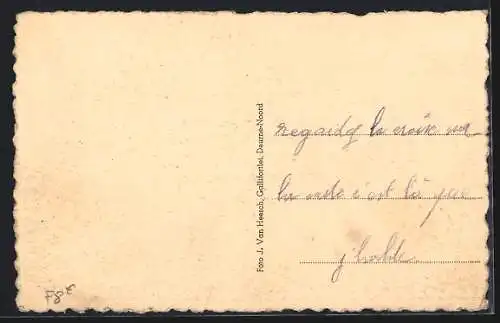 Foto J. Van Heesch, Gallifortlei, Deurne-Noord
regardz la croix sur
la carte c'est là que
j'habite.
F8€